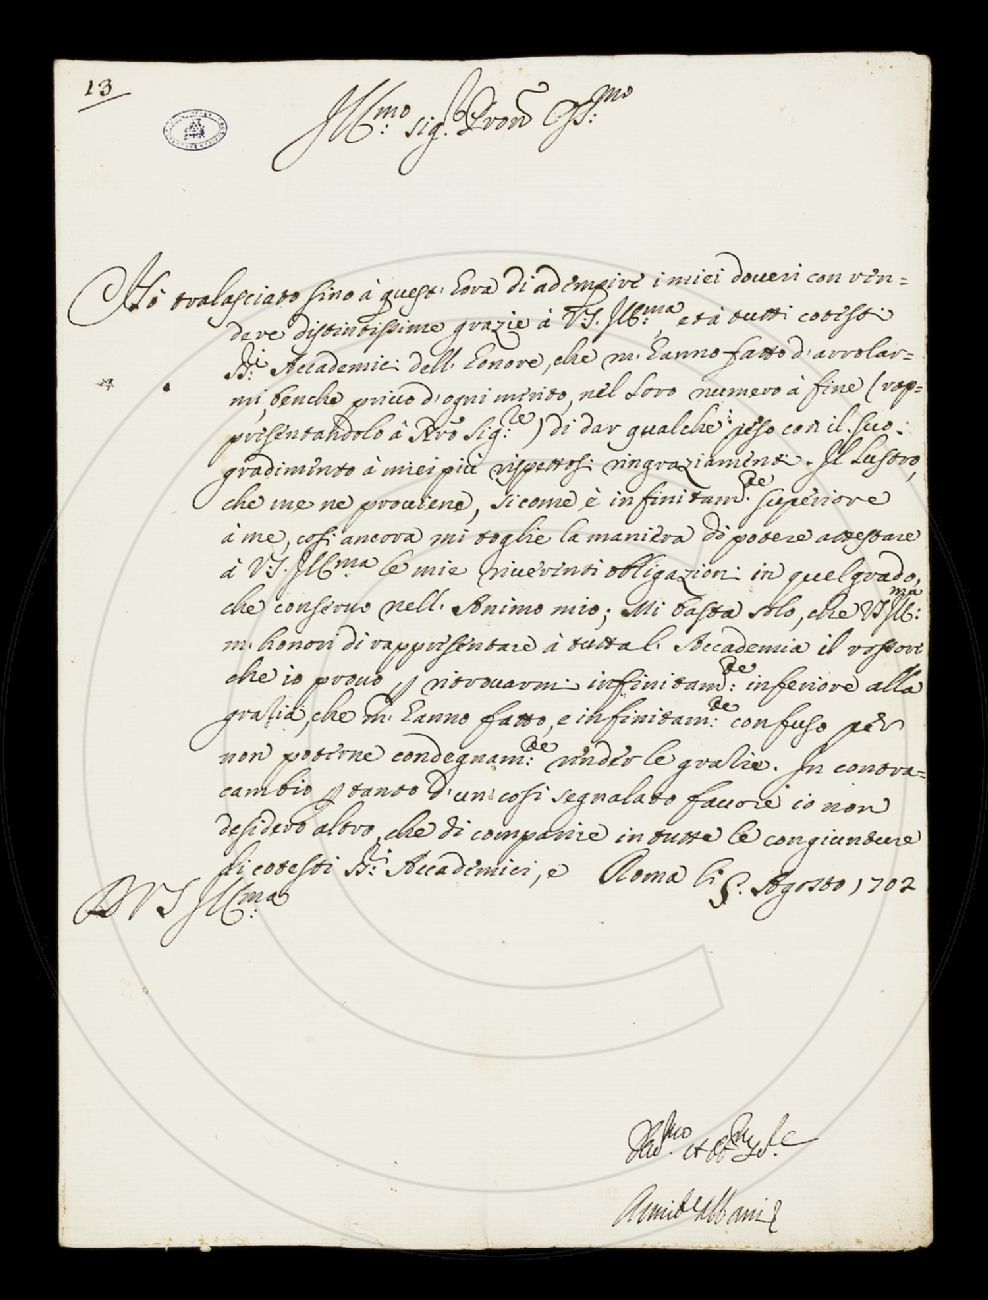 13
Ill:mo Sig.r Pron Oss:mo
Hò tralasciato sino à quest' hora di adempire i miei doueri con ren=
dere distintissime grazie à V.S. Ill:ma, et à tutti cotesti
SS:ri Accademici dell' honore, che m' hanno fatto d' arrolar=
mi, benche priuo d' ogni merito, nel Loro numero à fine (rap=
presentandolo à Sig:re) di dar qualche peso con il suo
gradimento à miei più rispettosi ringraziamenti. Il Lustro,
che me ne prouiene, sicome è infinitam:te superiore
à me, così ancora mi toglie la maniera di potere attestare
à V.S. Ill:ma le mie riuerenti obligazioni in quel grado,
che conseruo nell' Animo mio; Mi basta solo, che VS Ill:ma
m' honori di rappresentare à tutta l' Accademia il rossore
che io prouo p ritrouarmi infinitam:te inferiore alla
grazia, che m' hanno fatto, e infinitam:te confuso per
non poterne condegnam:te render le grazie. In contra=
cambio p tanto d' un così segnalato fauore io non
desidero altro, che di comparire in tutte le congiunture
di cotesti SS:ri Accademici, e Roma li 5. Agosto 1702
D VS Ill:ma
Deuo:mo et Obl
Annib.e Albani